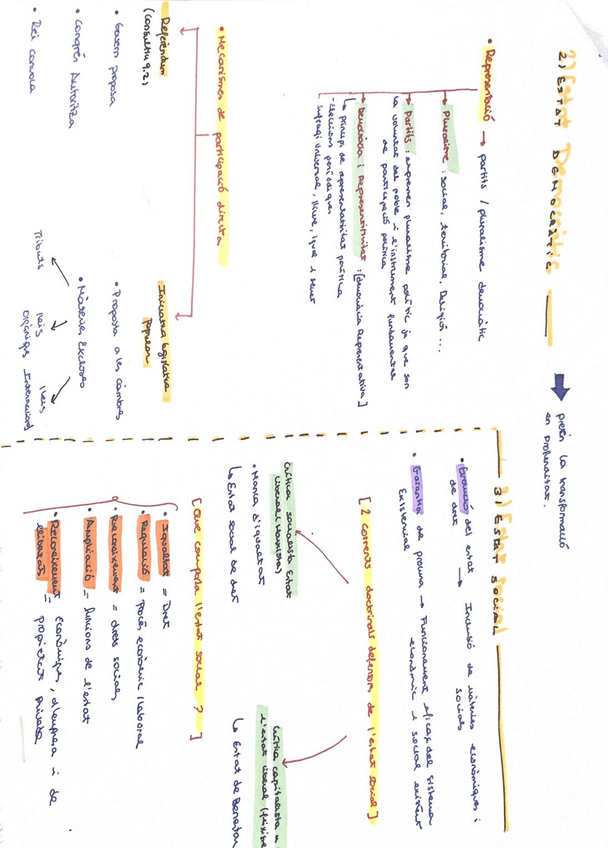 2) ESTAT DEMOCRÀTIC
prenen la transformació
en profunditat.
• Representació → partits / pluralisme democràtic
Pluralisme: social, territorial, Religió...
Partits: expressen pluralisme polític ja que son
la voluntat del poble i l'instrument fonamental
de participació política
Democràcia i Representativitat: [democràcia Representativa]
↳ princip. de representativitat política
- eleccions periòdiques
- sufragi universal, lliure, igual i secret
• Mecanismes de participació directa
Referèndum
(consultiu 92)
• Govern proposa
• Congrés Autoritza
• Rei convoca
Iniciativa legislativa
Popular
• Proposta a les cambres
• Matèries Excloses
Tributs
lleis
orgàniques
lleis
Internacional
3) ESTAT SOCIAL
• del estat → Inclusió de matèries econòmiques i
de dret socials
• Garantia de procura → Funcionament eficaç del sistema
Existencial econòmic i social existent
[2 corrents doctrinals defensen de l'estat social]
Crítica socialista Estat
Liberal (Marxisme)
• Manca d'igualtat
↳ Estat social de dret
Crítica capitalista a
l'estat liberal
↳ Estat de Benestar
[Què comporta l'estat social?]
• Igualtat = Dret
• Regulació = Procés econòmic / laboral
• Reconeixement = drets socials
• Ampliació = funcions de l'estat
• Reconeixement = econòmiques, d'empresa i de
llibertats propietat privada